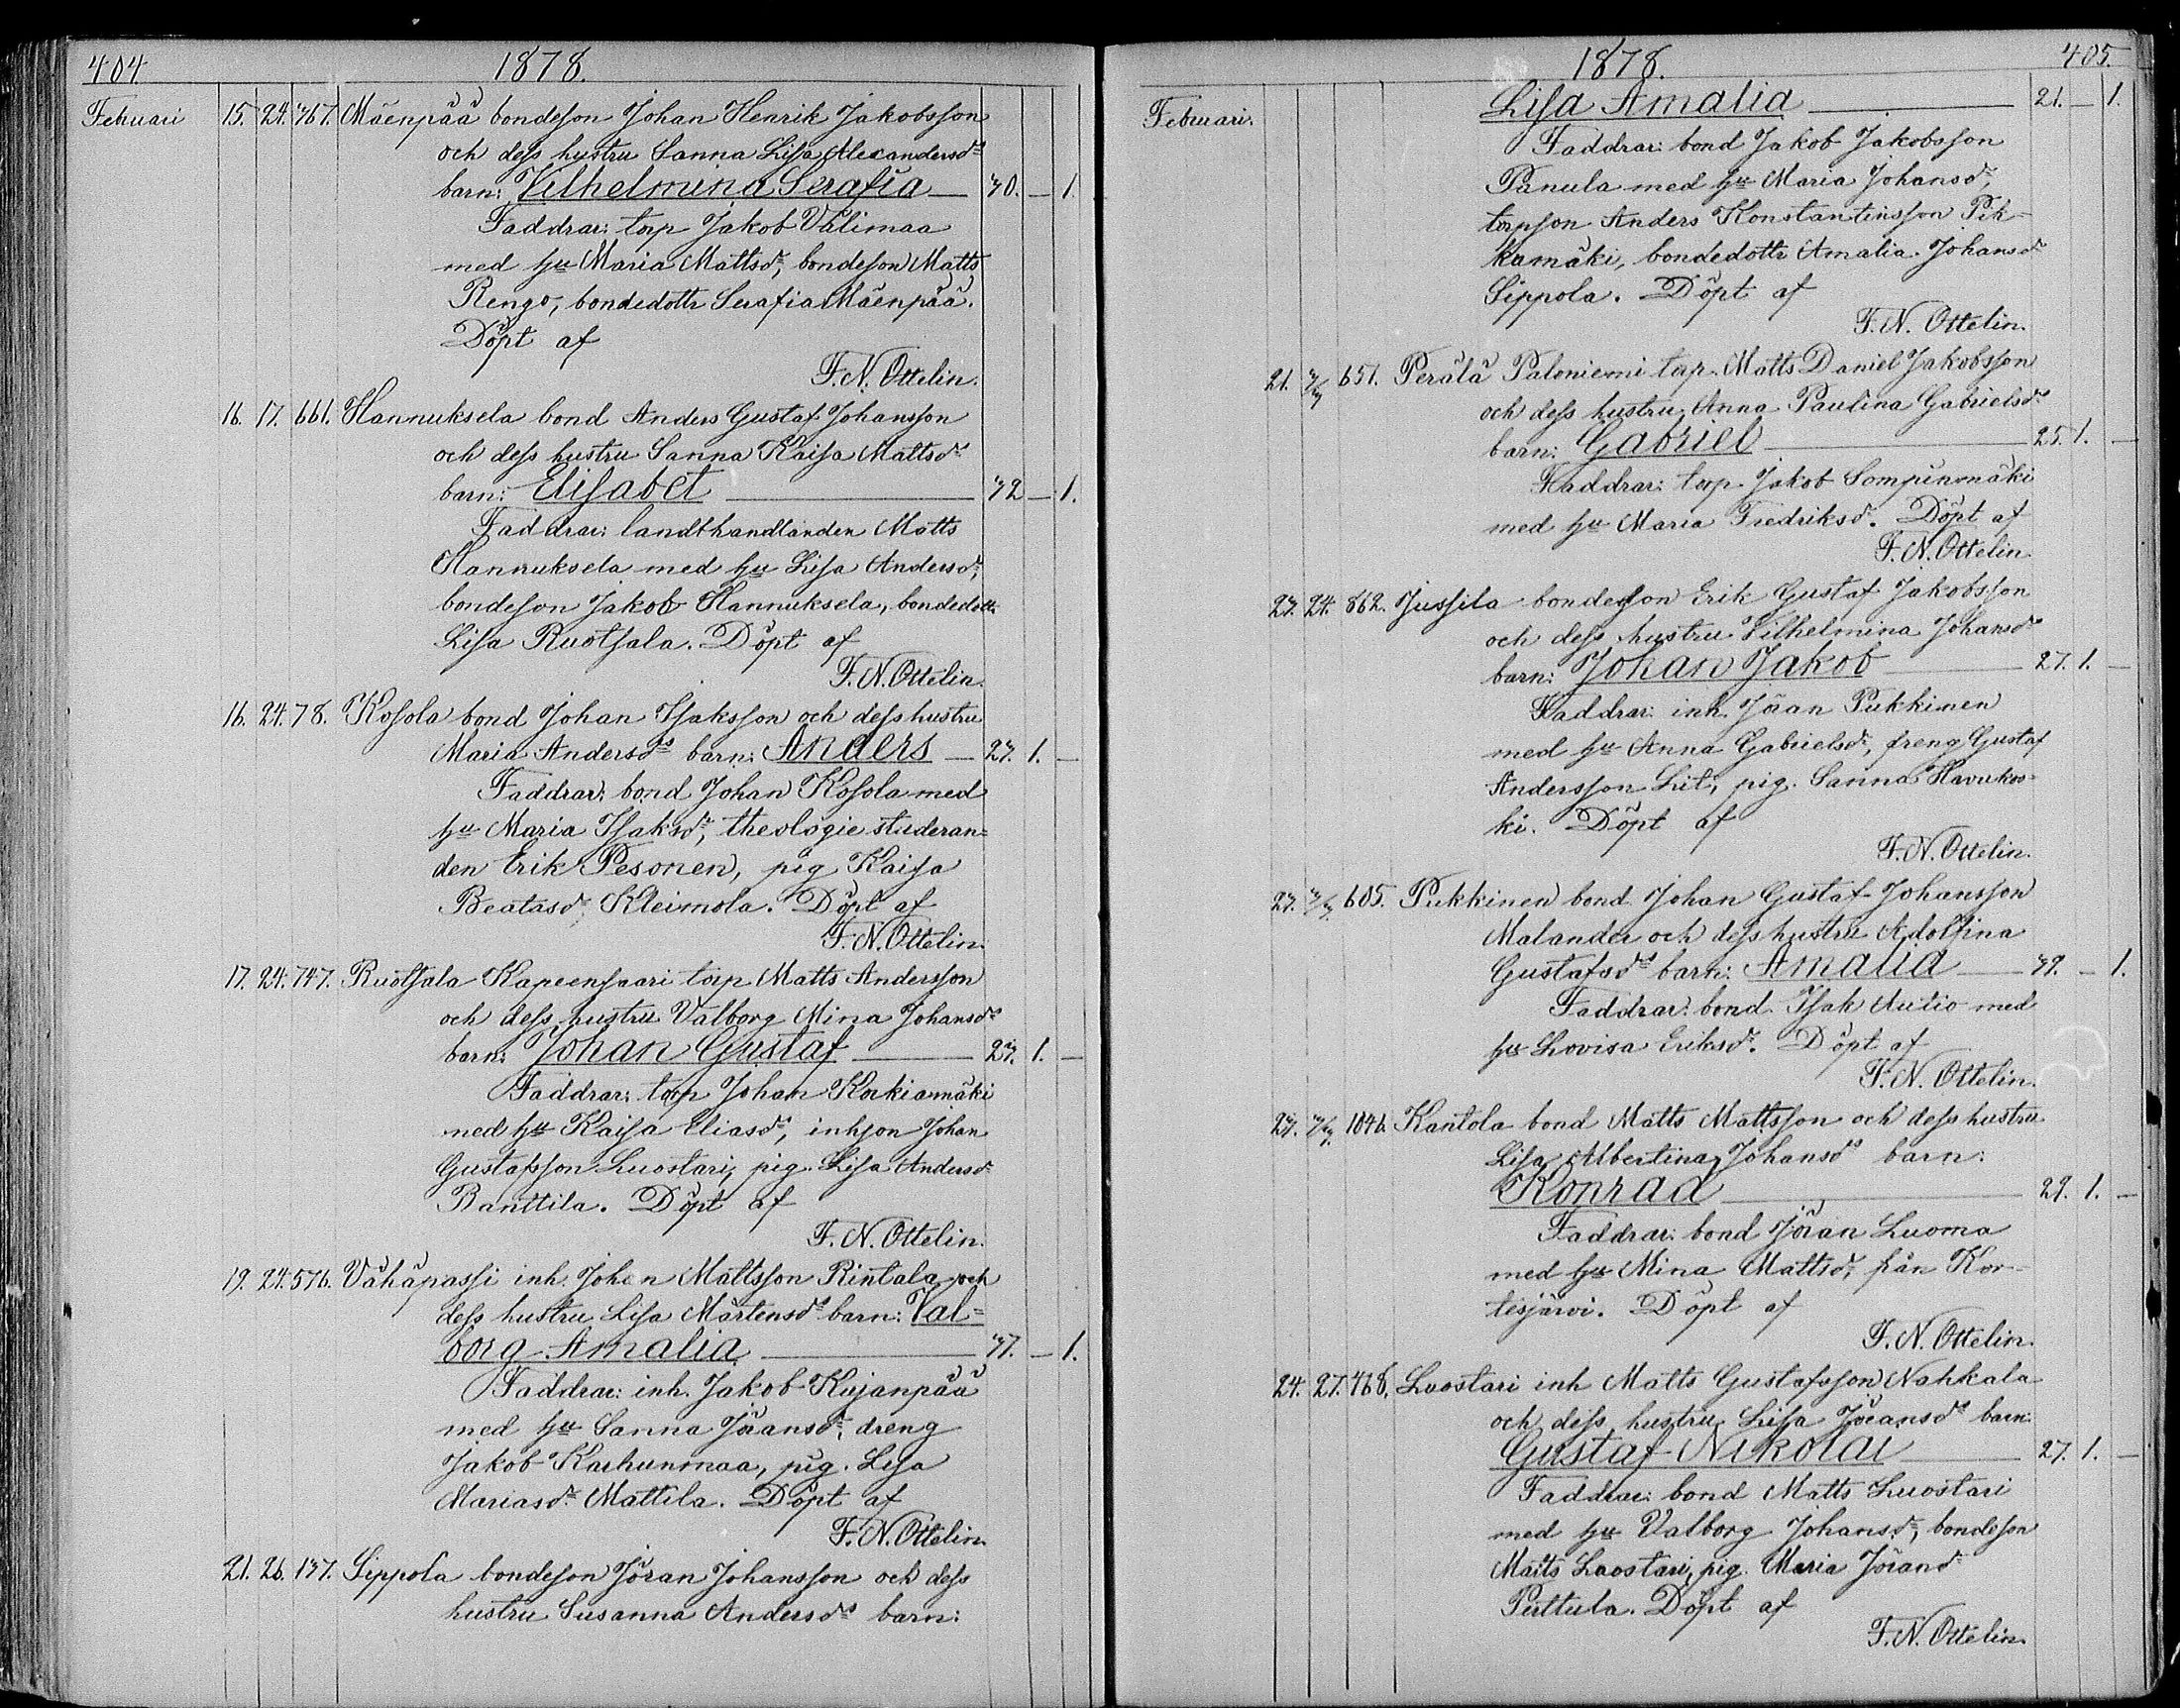 404
1878.
Februari 15. 24. 767. Mäenpää bondeson Johan Henrik Jakobsson
och dess hustru Sanna Lisa Alexandersd:r
barn: Vilhelmina Serafia — 30. — 1.
Faddrar: torp Jakob Välimaa
med hu Maria Mattsd:r, bondeson Matts
Rengo, bondedottr Serafia Mäenpää.
Döpt af
F. N. Ottelin.
16. 17. 661. Hannuksela bond Anders Gustaf Johansson
och dess hustru Sanna Kaisa Mattsd:r
barn: Elisabet — 32 — 1.
Faddrar: landthandlanden Matts
Hannuksela med hu Lisa Andersd:r,
bondeson Jakob Hannuksela, bondedottr
Lisa Ruotsala. Döpt af
F. N. Ottelin.
16. 24. 78. Kosola bond Johan Isaksson och dess hustru
Maria Andersd:s barn: Anders — 27. 1. —
Faddrar: bond Johan Kosola med
hu Maria Isaksd:r, theologie studeran=
den Erik Pesonen, pig Kaisa
Beatasd:r Kleimola. Döpt af
F. N. Ottelin.
17. 24. 747. Ruotsala Kapeensaari torp Matts Andersson
och dess hustru Valborg Mina Johansd:s
barn: Johan Gustaf — 27. 1. —
Faddrar: torp Johan Korkiamäki
med hu Kaisa Eliasd:r, inhson Johan
Gustafsson Luostari, pig. Lisa Andersd:r
Banttila. Döpt af
F. N. Ottelin.
19. 24. 576. Vähäpassi inh. Johan Mattsson Rintala och
dess hustru Lisa Mårtensd:s barn: Val=
borg Amalia — 37. — 1.
Faddrar: inh. Jakob Kujanpää
med hu Sanna Jöransd:r, dreng
Jakob Karhunmaa, pig. Lisa
Mariasd:r Mattila. Döpt af
F. N. Ottelin.
21. 26. 137. Sippola bondeson Jöran Johansson och dess
hustru Susanna Andersd:s barn:
1878.
405
Februari.
Lisa Amalia — 21. — 1.
Faddrar: bond Jakob Jakobsson
Panula med hu Maria Johansd:r,
torpson Anders Konstantinsson Pik-
kamäki, bondedottr Amalia Johansd:r
Sippola. Döpt af
F. N. Ottelin.
21. 651. Perälä Paloniemi torp. Matts Daniel Jakobsson
och dess hustru Anna Paulina Gabrielsd:s
barn: Gabriel — 25. 1. —
Faddrar: torp Jakob Sompinmäki
med hu Maria Fredriksd:r. Döpt af
F. N. Ottelin.
23. 24. 862. Jussila bondesson Erik Gustaf Jakobsson
och dess hustru Vilhelmina Johansd:s
barn: Johan Jakob — 27. 1. —
Faddrar: inh. Jöran Pukkinen
med hu Anna Gabrielsd:r, dreng Gustaf
Andersson Lit, pig. Sanna Havukos-
ki. Döpt af
F. N. Ottelin.
23. 605. Pukkinen bond Johan Gustaf Johansson
Malander och dess hustru Adolfina
Gustafsd:s barn: Amalia — 39. — 1.
Faddrar: bond Isak Autio med
hu Lovisa Eriksd:r. Döpt af
F. N. Ottelin.
23. 1046. Kantola bond Matts Mattsson och dess hustru
Lisa Albertina Johansd:s barn:
Konrad — 29. 1. —
Faddrar: bond Jöran Luoma
med hu Mina Mattsd:r, från Kor-
tesjärvi. Döpt af
F. N. Ottelin.
24. 27. 468. Luostari inh Matts Gustafsson Nahkala
och dess hustru Lisa Jöransd:s barn:
Gustaf Nikolai — 27. 1. —
Faddrar: bond Matts Luostari
med hu Valborg Johansd:r, bondeson
Matts Luostari, pig. Maria Jörand:r
Perttula. Döpt af
F. N. Ottelin.